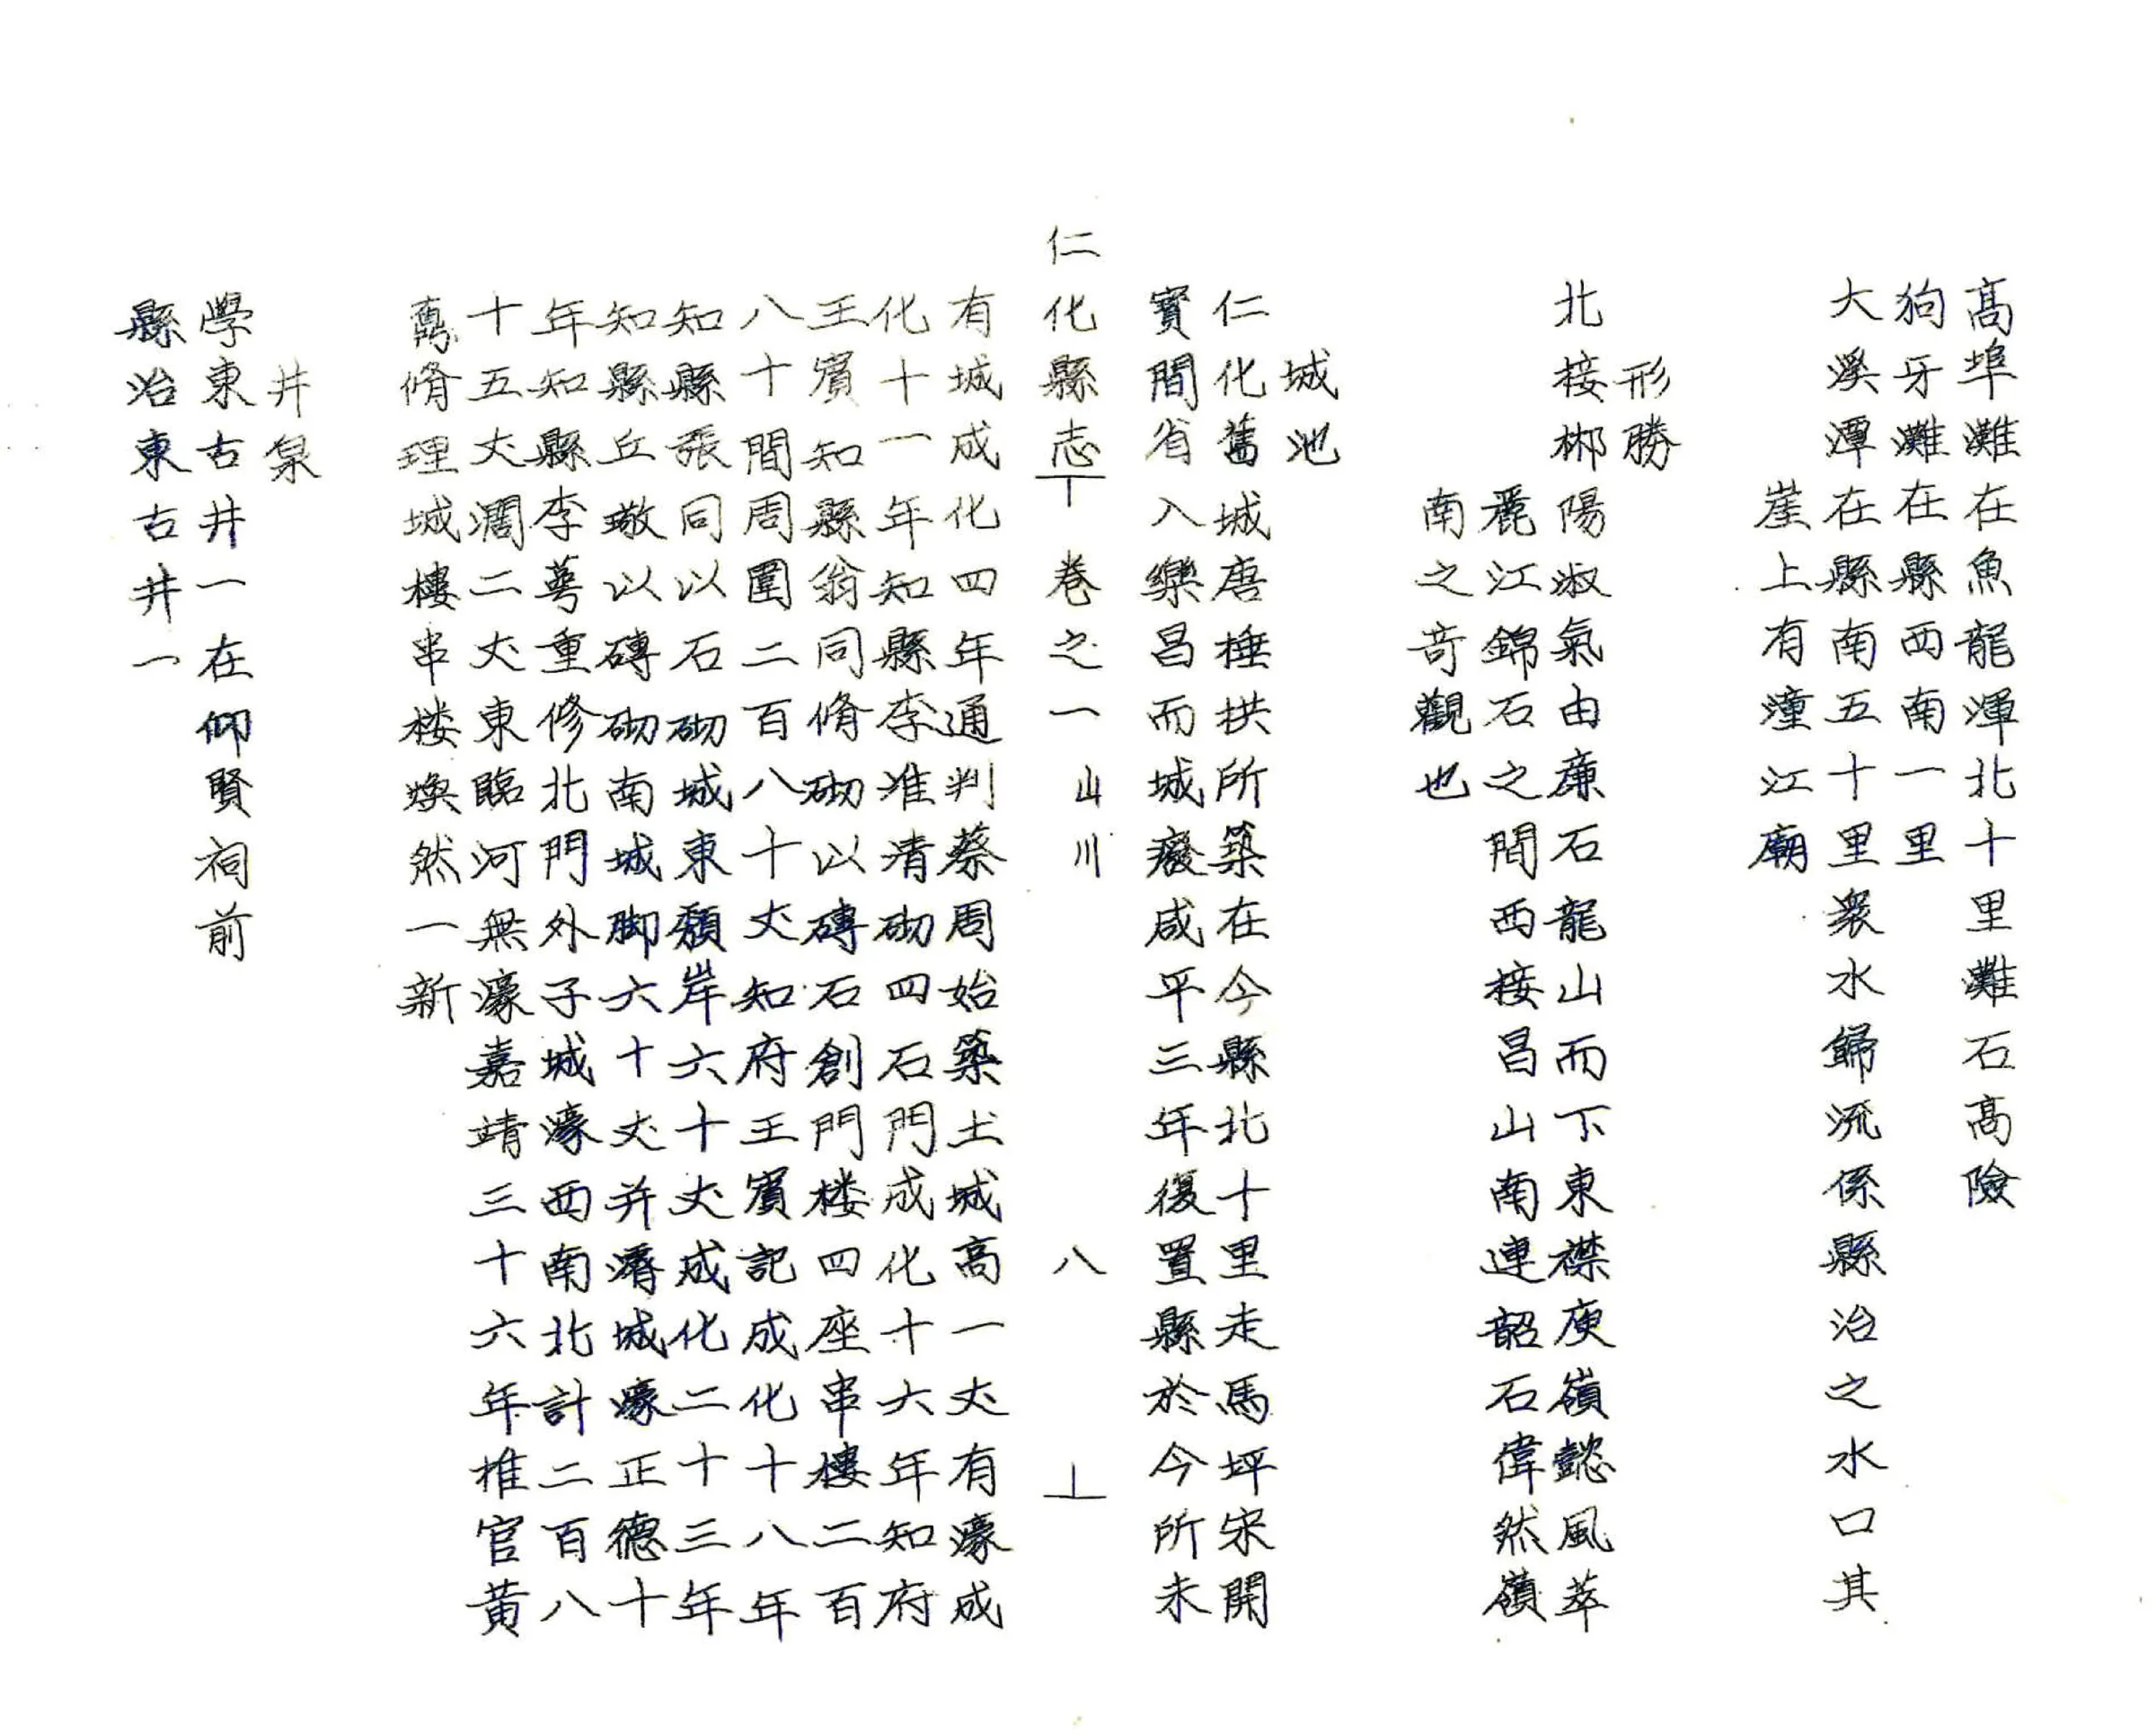 髙埠灘在魚龍渾北十里灘石髙險
狗牙灘在縣西南一里
大溪潭在縣南五十里衆水歸流係縣治之水口其
崖上有潼江廟
形勝
北接郴陽淑氣由亷石龍山而下東襟庾嶺懿風萃
麗江錦石之間西接昌山南連韶石偉然嶺
南之竒觀也
城池
仁化舊城唐捶拱所築在今縣北十里走馬坪宋開
寳間省入樂昌而城癈咸平三年復置縣於今所未
仁化縣志 卷之一 山川 八
有城成化四年通判蔡周始築土城高一丈有濠成
化十一年知縣李准清砌四石門成化十六年知府
王賔知縣翁同脩砌以磚石創門楼四座串樓二百
八十間周圍二百八十丈知府王賔記成化十八年
知縣張同以石砌城東頽岸六十丈成化二十三年
知縣丘璥以磚砌南城脚六十丈并濬城濠正德十
年知縣李萼重修北門外子城濠西南北計二百八
十五丈濶二丈東臨河無濠嘉靖三十六年推官黄
脩理城樓串楼煥然一新
井泉
學東古井一在仰賢祠前
縣治東古井一